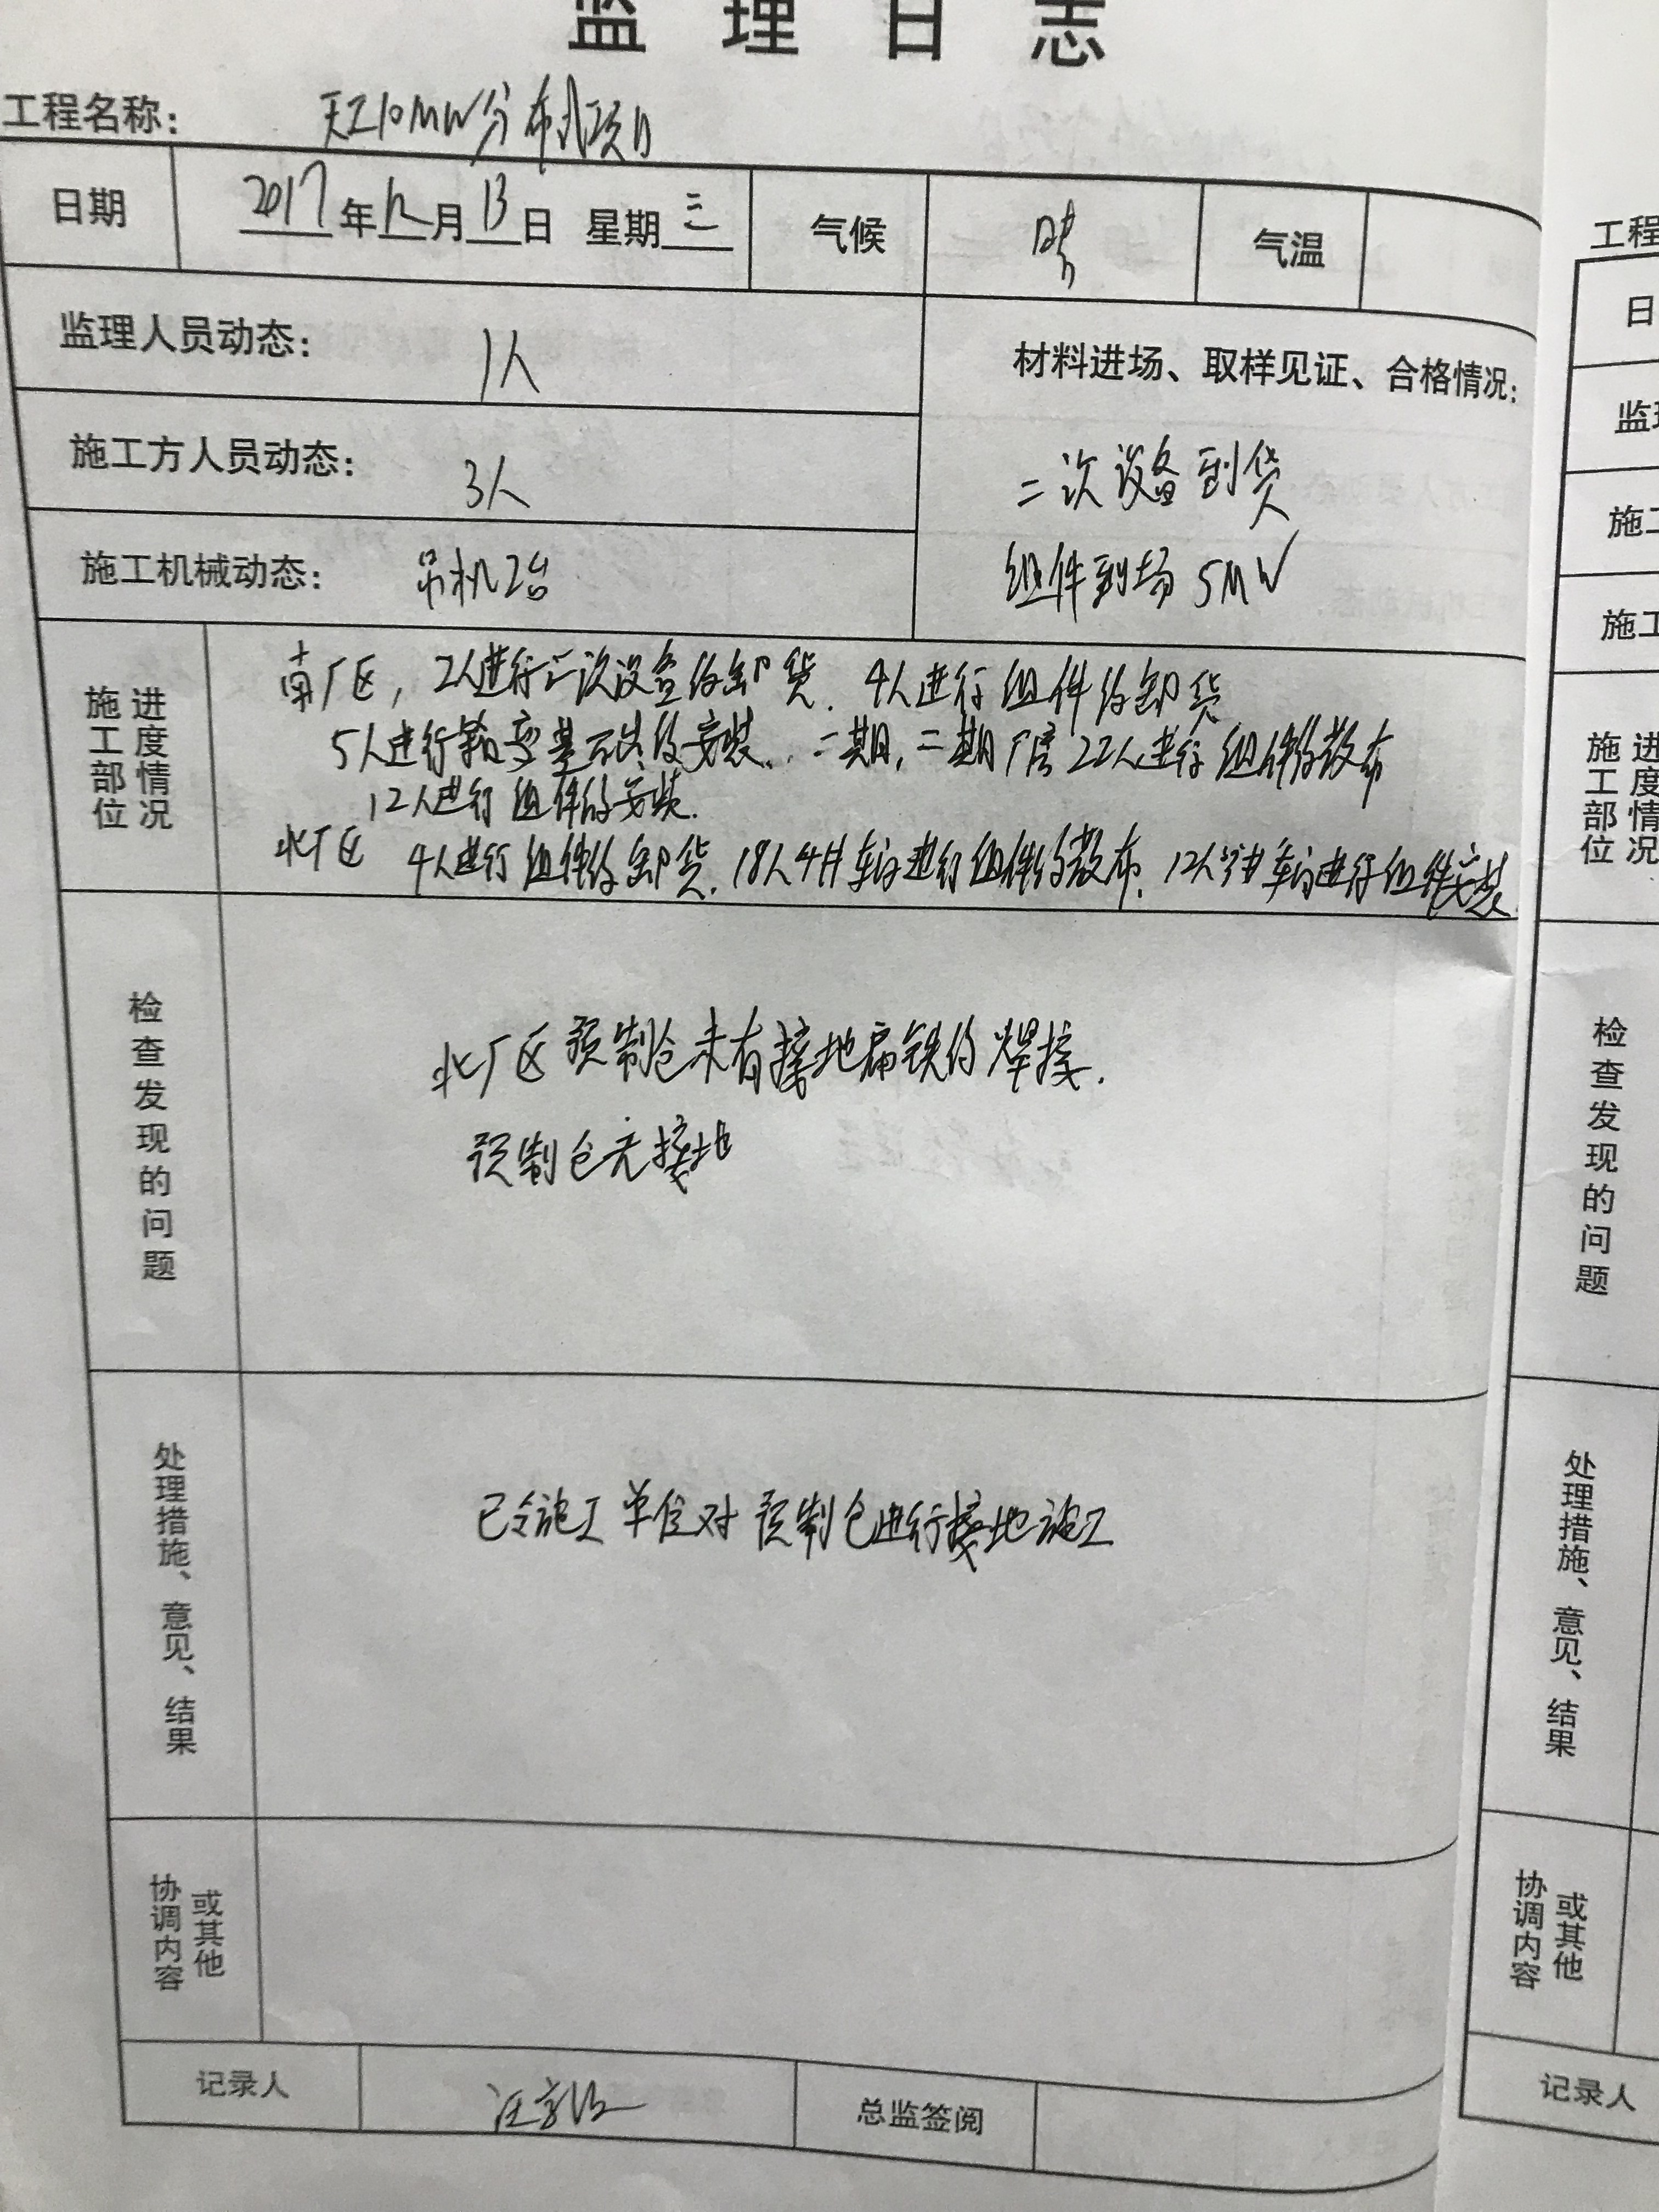 监理日志
工程名称： 天工10MW分布式项目
日期 2017年12月13日 星期三 气候 晴 气温
监理人员动态： 1人
材料进场、取样见证、合格情况：
施工方人员动态： 3人
二次设备到货
施工机械动态： 吊机2台
组件到场 5MW
施工部位 进度情况
南厂区，2人进行二次设备的卸货．4人进行组件的卸货
5人进行箱变基础的安装．二期，二期厂房22人进行组件的散布
12人进行组件的安装．
北厂区 4人进行组件的卸货．18人4#车间进行组件的散布．12人 车间进行组件安装．
检查发现的问题
北厂区预制仓未有接地扁铁的焊接．
预制仓无接地
处理措施、意见、结果
已令施工单位对预制仓进行接地施工
协调内容 或其他
记录人 汪 总监签阅
工程
日
监理
施工
施工
施工部位 进度情况
检查发现的问题
处理措施、意见、结果
协调内容 或其他
记录人